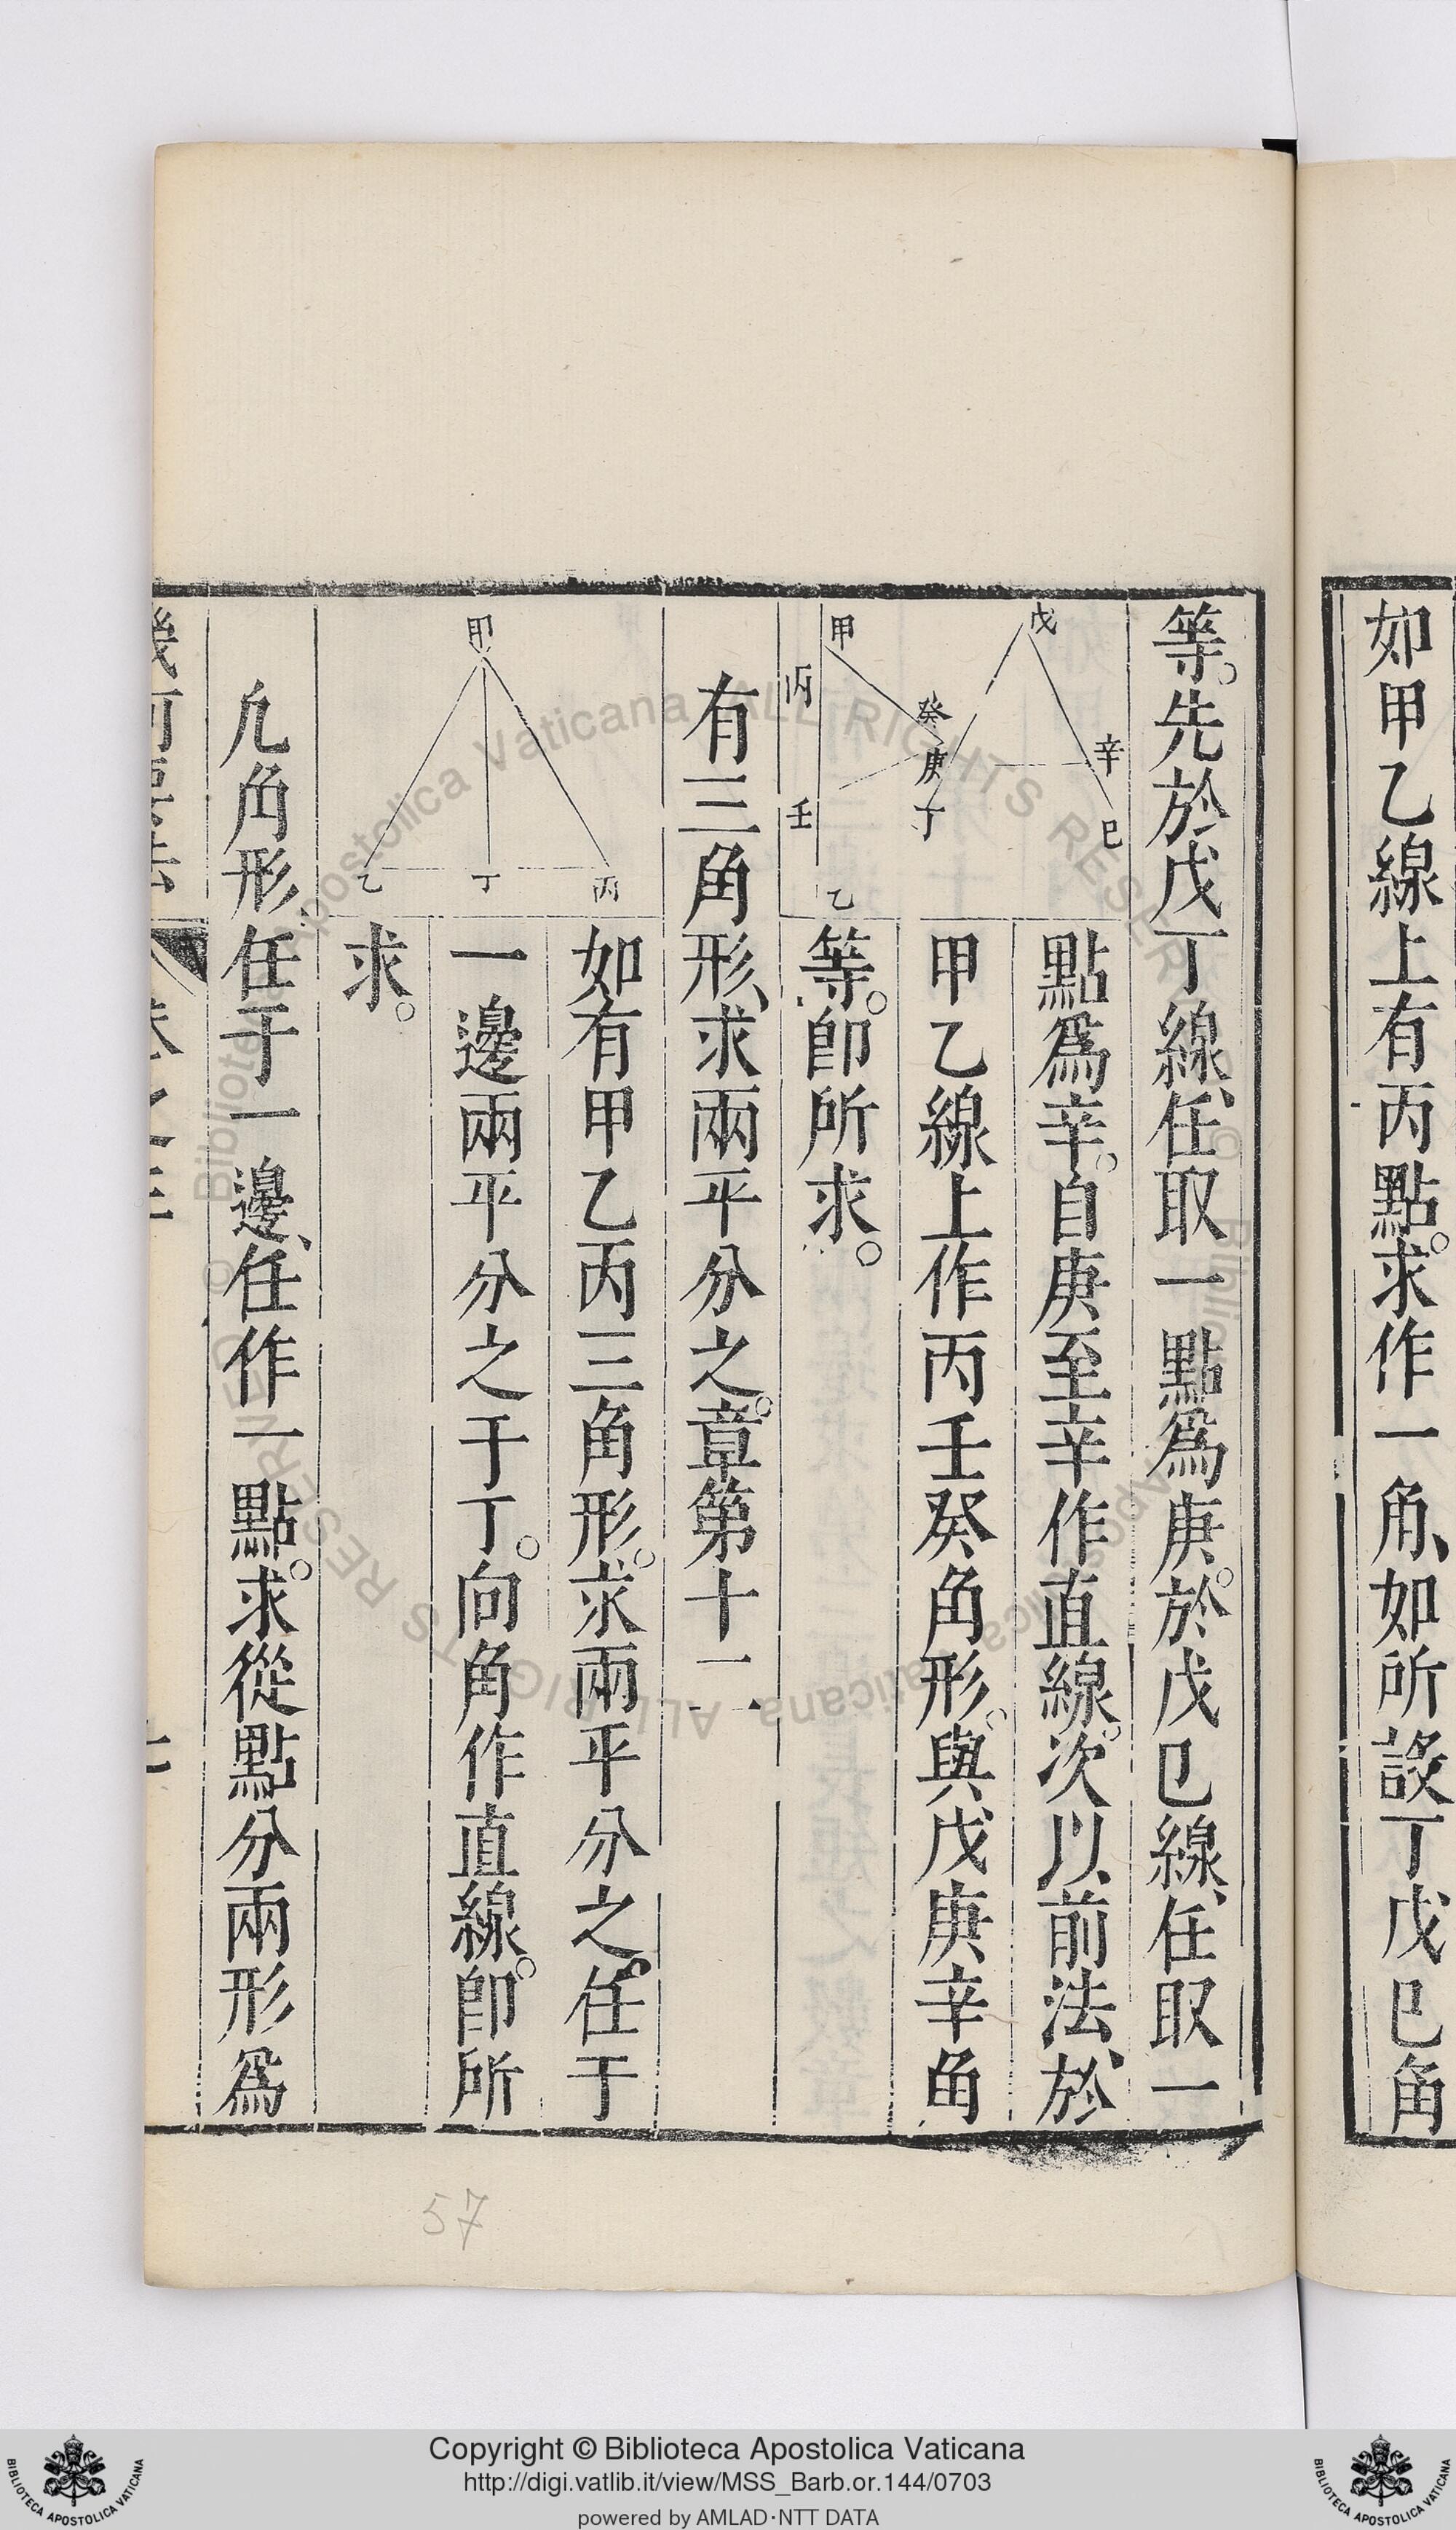 如甲乙線上有丙點。求作一角、如所設丁戊巳角
等。先於戊丁線、任取一點爲庚。於戊巳線、任取一
點爲辛。自庚至辛作直線。次以前法、於
甲乙線上作丙壬癸角形。與戊庚辛角
等。卽所求。
戊
辛
巳
癸
庚
丁
甲
丙
壬
乙
有三角形、求兩平分之。章第十二
如有甲乙丙三角形。求兩平分之。任于
一邊兩平分之于丁。向角作直線。卽所
求。
甲
乙
丁
丙
凡角形、任于一邊、任作一點。求從點分兩形爲
57
Copyright © Biblioteca Apostolica Vaticana
http://digi.vatlib.it/view/MSS_Barb.or.144/0703
powered by AMLAD·NTT DATA
BIBLIOTECA APOSTOLICA VATICANA
BIBLIOTECA APOSTOLICA VATICANA